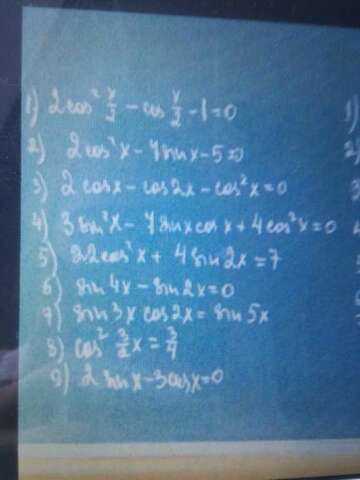 1) 2cos² x/2 - cos x/2 - 1 = 0
2) 2cos²x - 7sinx - 5 = 0
3) 2cosx - cos2x - cos²x = 0
4) 3sin²x - 7sinxcosx + 4cos²x = 0
5) 22cos²x + 4sin2x = 7
6) sin4x - sin2x = 0
7) sin3x cos2x = sin5x
8) cos² 3/2 x = 3/4
9) 2sinx - 3cosx = 0